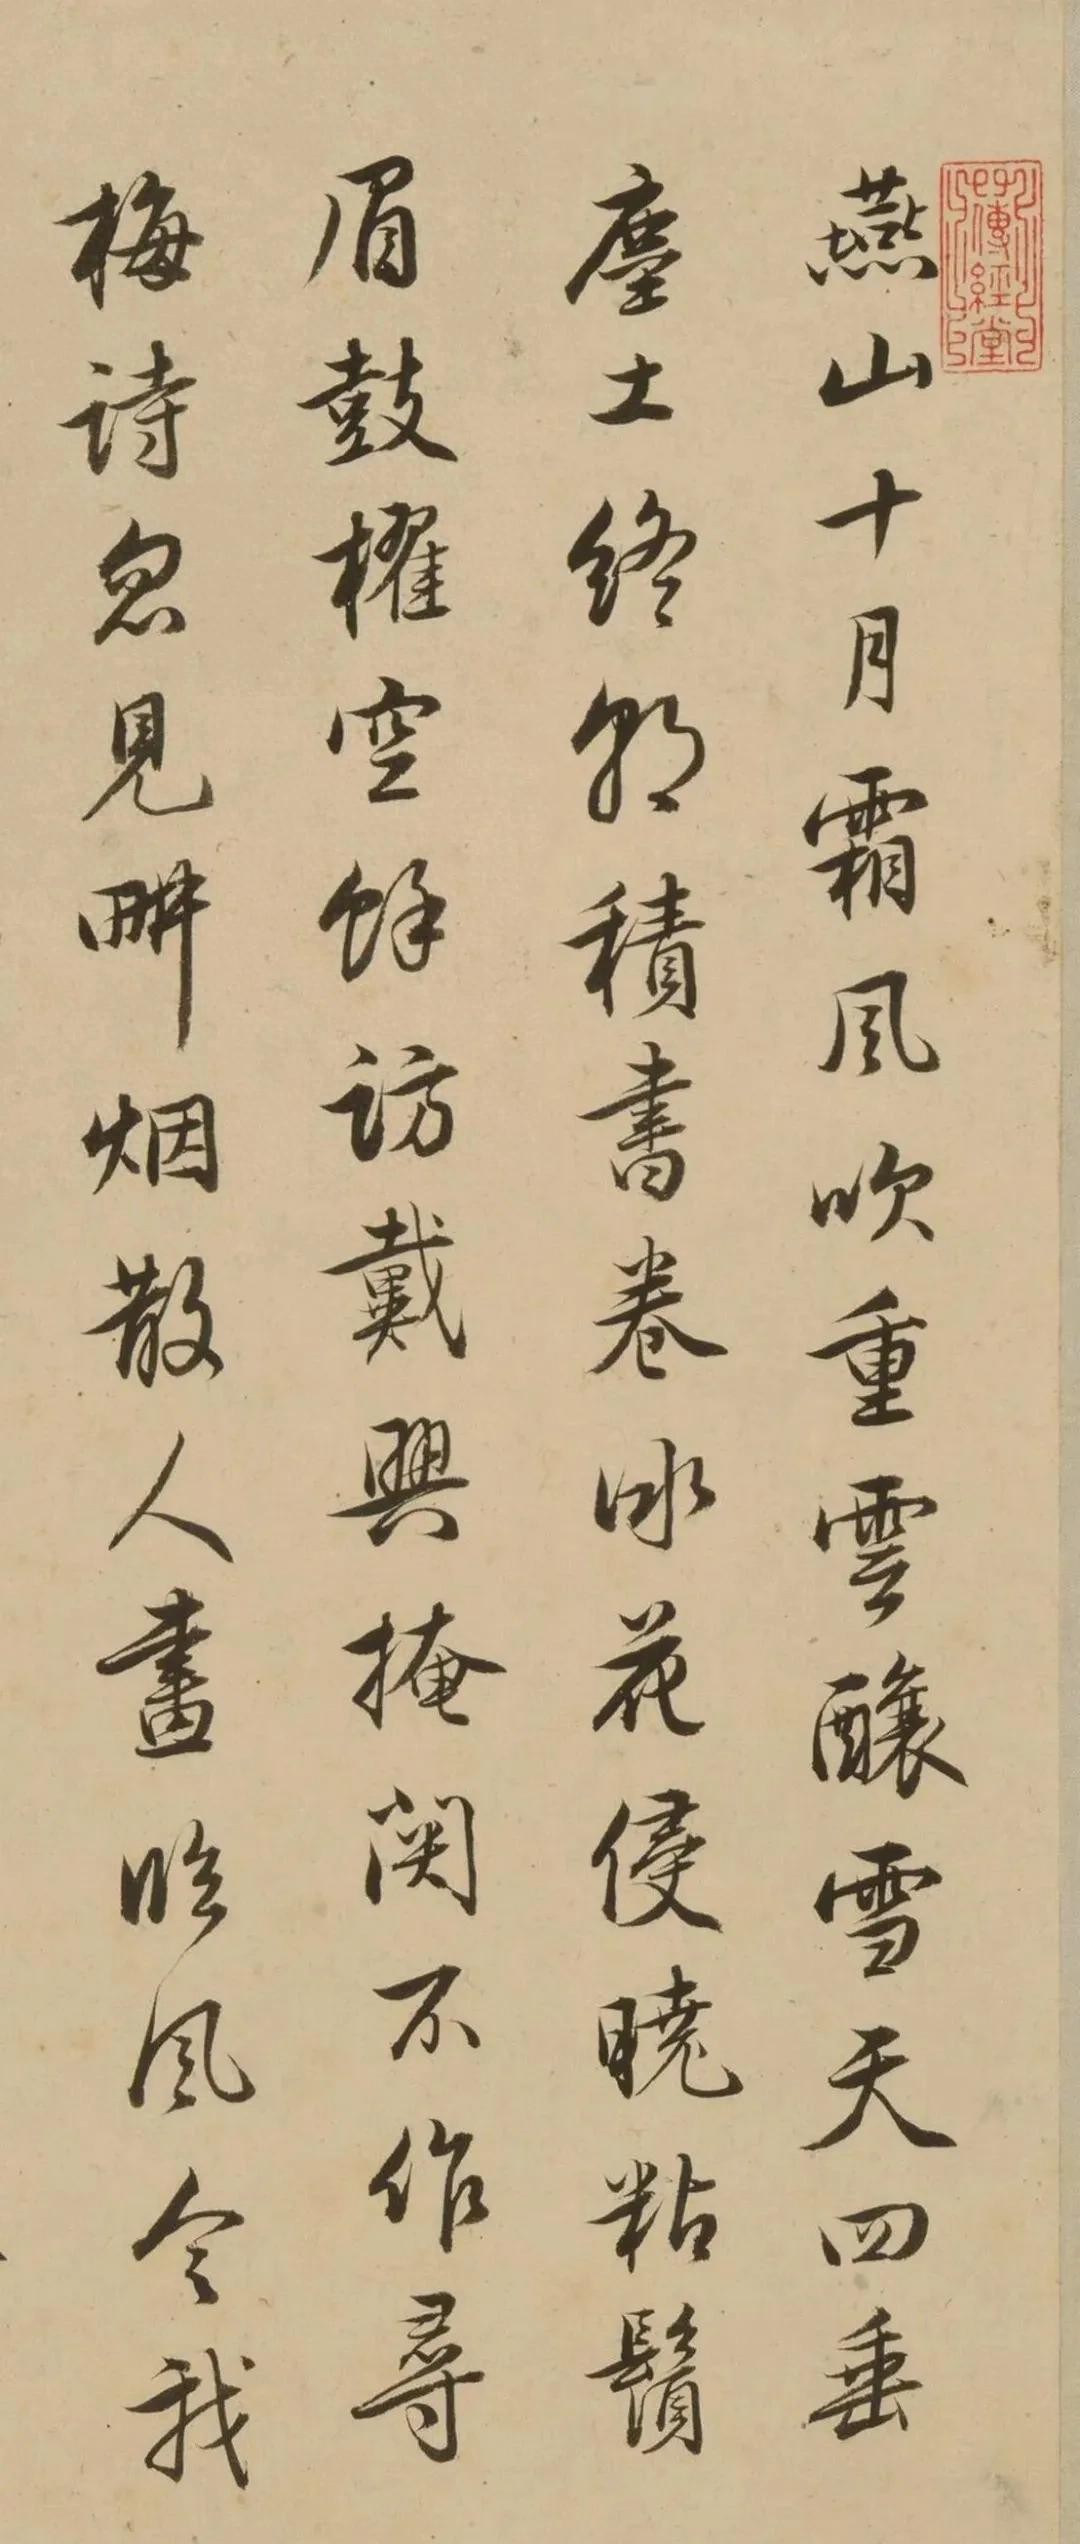 燕山十月霜風吹重雲釀雪天四垂
塵土終朝積書卷冰花侵曉粘鬚
眉鼓櫂空餘訪戴興掩関不作尋
梅詩忽見畊烟散人畫臨風令我
傳經堂